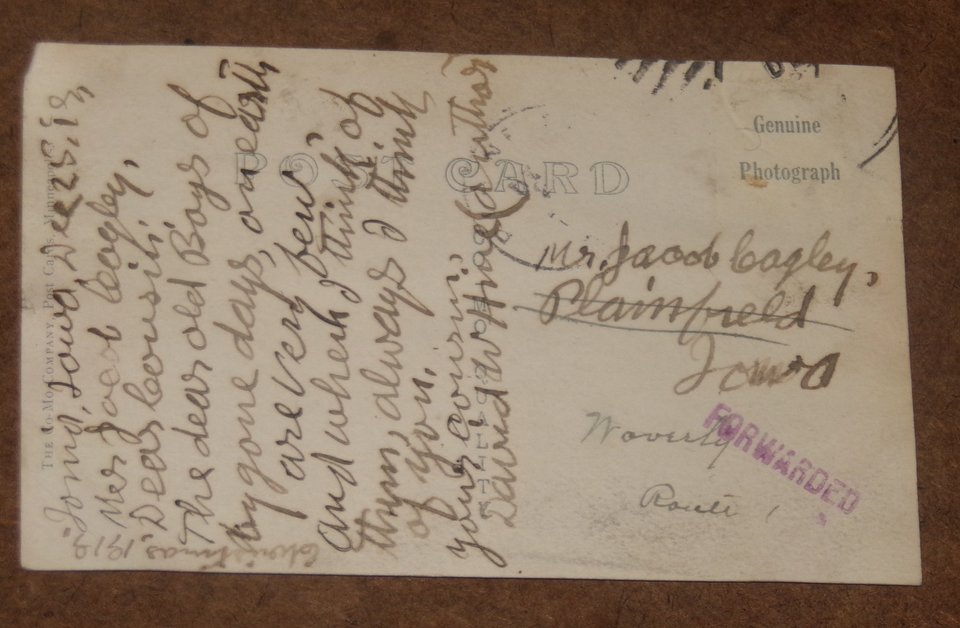 THE CO-MO COMPANY, Post Cards, Minneapolis
Christmas, 1912.
Iowa, Dec 25.12,
Mr. Jacob Cagley,
Dear Cousin:
The dear old Boys of
bygone days, on earth
are very few,
and when I think of
them, always I think
of you.
your cousin,
David W.
POST CARD
Genuine
Photograph
Mr. Jacob Cagley,
Plainfield
Iowa
Waverly
Route 1
FORWARDED